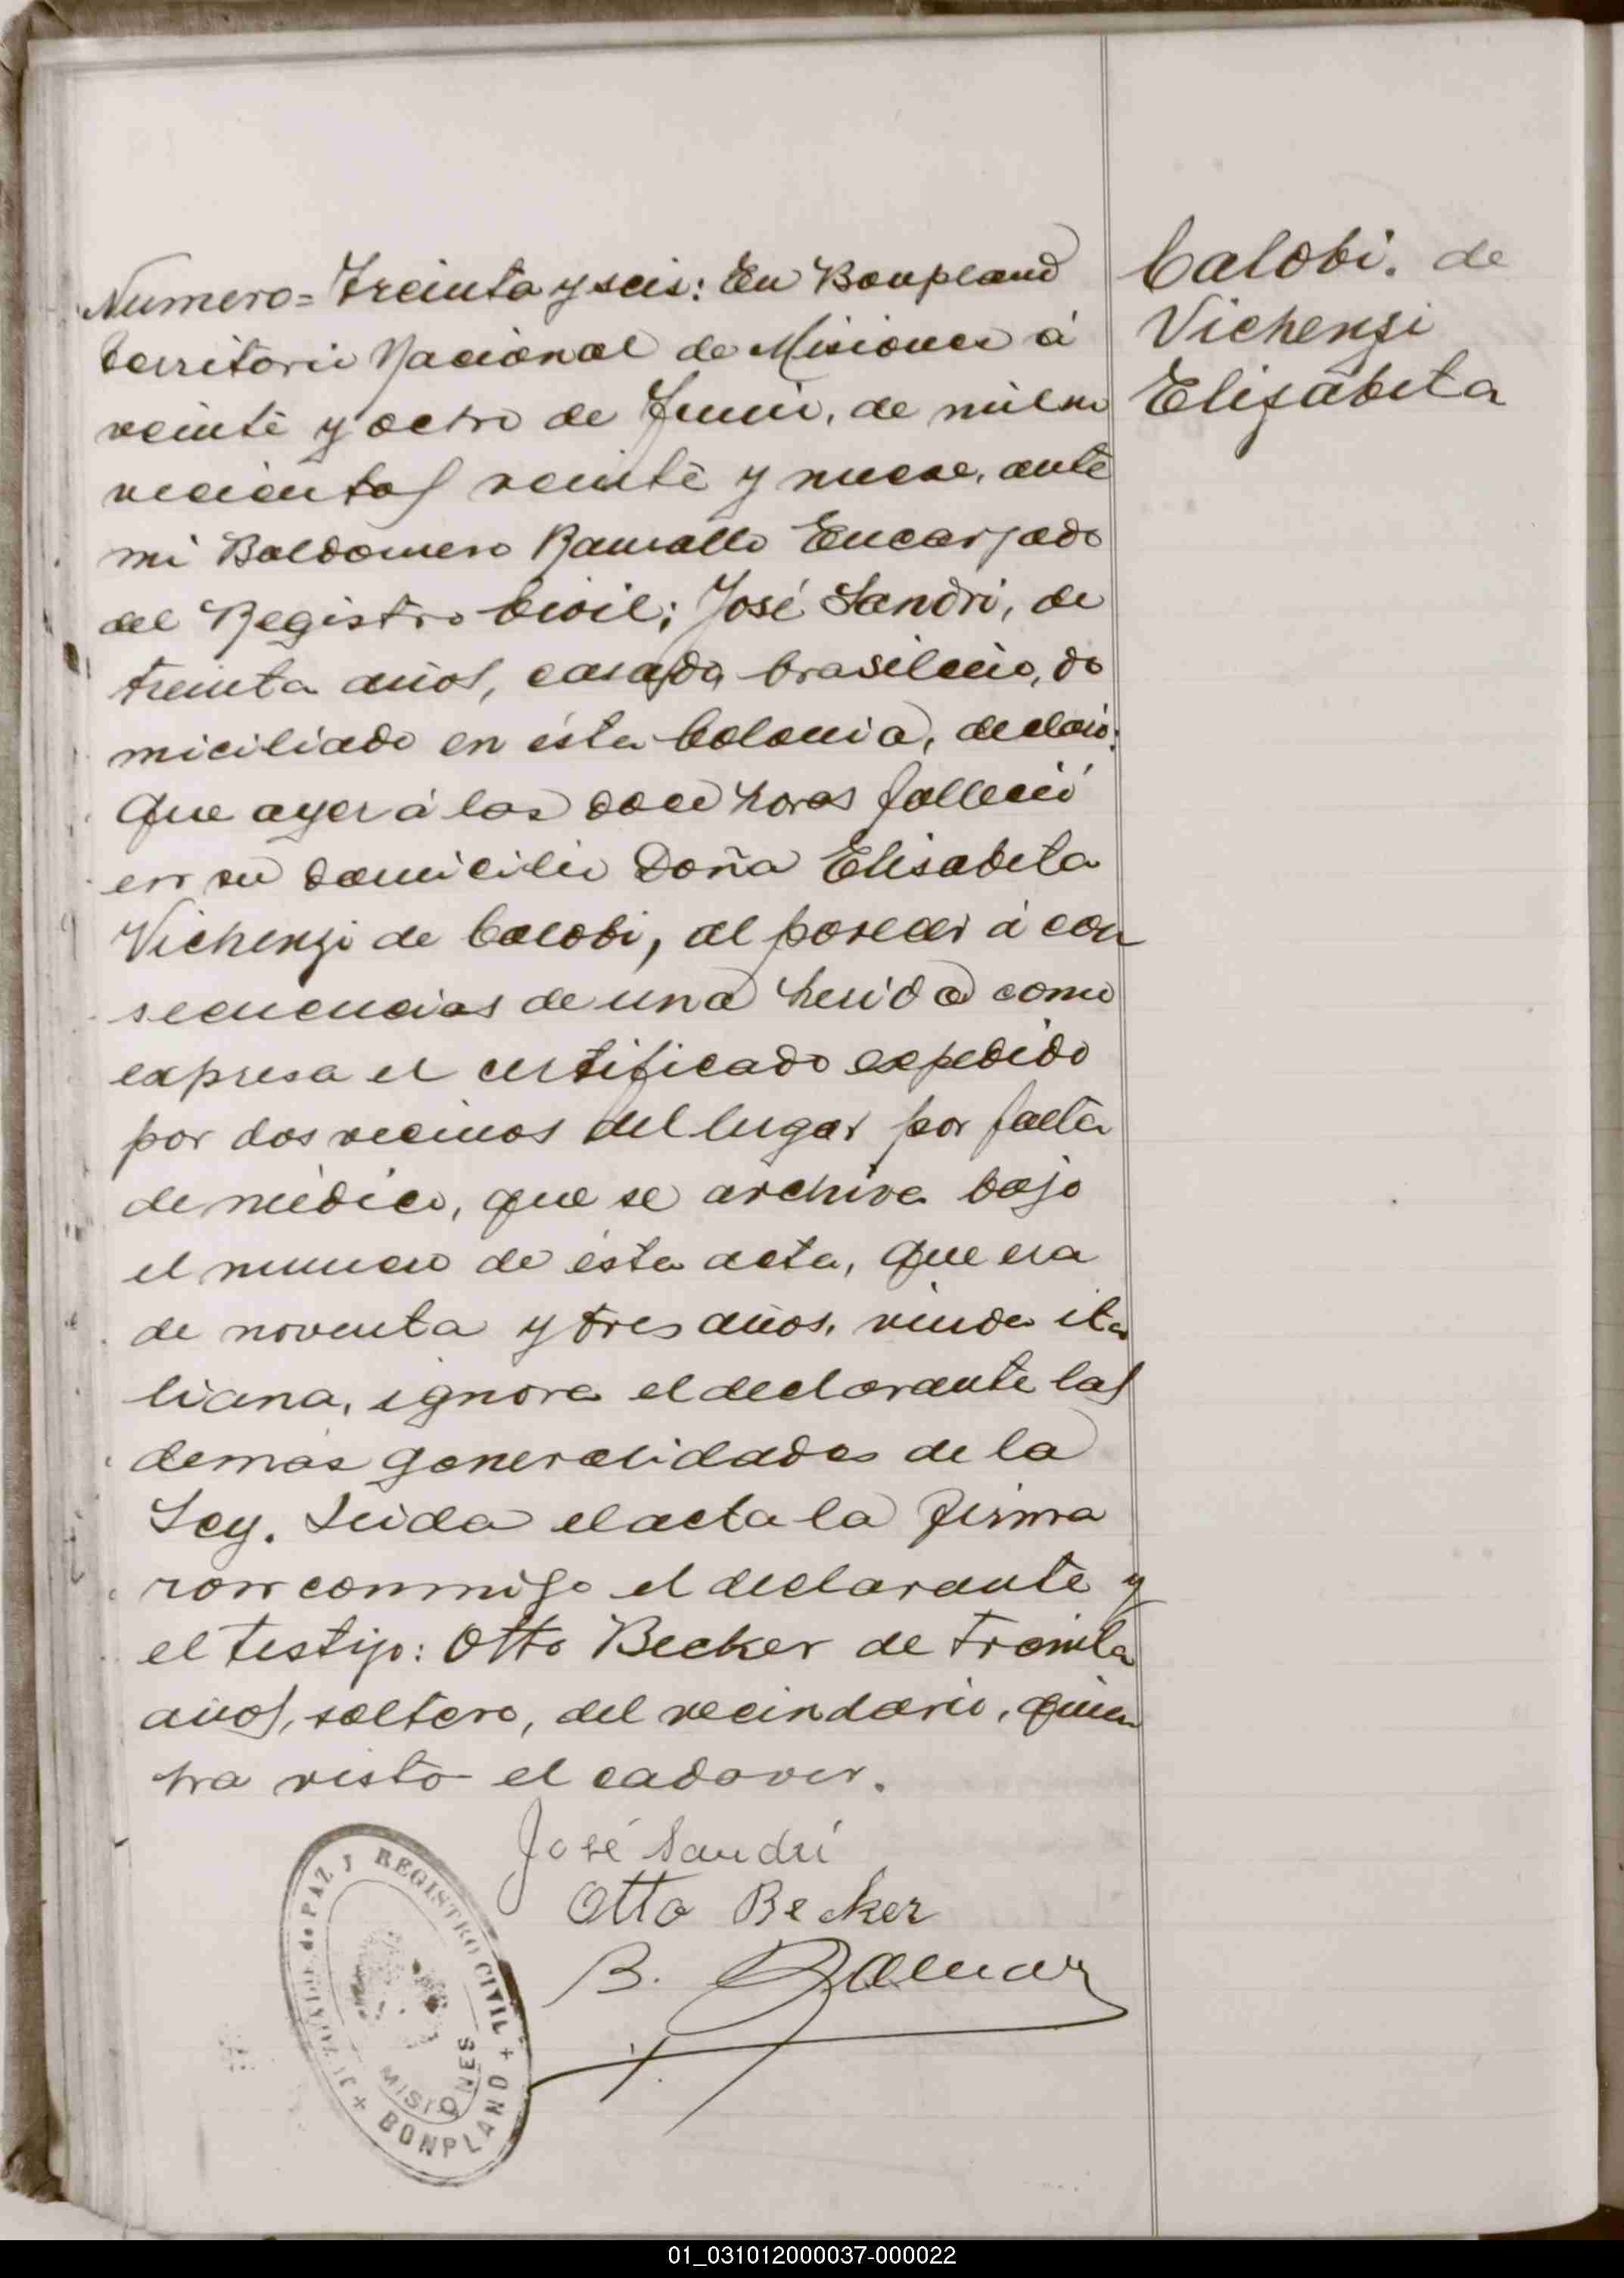 Calobi. de
Vichenzi
Elisabeta
Numero= Treinta y seis: En Bonpland
territorio Nacional de Misiones á
veinte y ocho de Junio, de mil no
vecientos veinte y nueve, ante
mi Baldomero Ramallo Encargado
del Registro Civil; José Sandri, de
treinta años, casado, brasileño, do
miciliado en ésta Colonia, declaró:
Que ayer á las doce horas falleció
en su domicilio Doña Elisabeta
Vichenzi de Calobi, al parecer á con
secuencias de una herida como
expresa el certificado expedido
por dos vecinos del lugar por falta
de médico, que se archiva bajo
el numero de ésta acta, que era
de noventa y tres años, viuda ita
liana, ignora el declarante las
demás generalidades de la
Ley. Leida el acta la firma
ron conmigo el declarante y
el testigo: Otto Becker de treinta
años, soltero, del vecindario, quien
ha visto el cadaver.
José Sandri
Otto Becker
B.
REGISTRO CIVIL + BONPLAND +
de PAZ
MISIONES
01_031012000037-000022